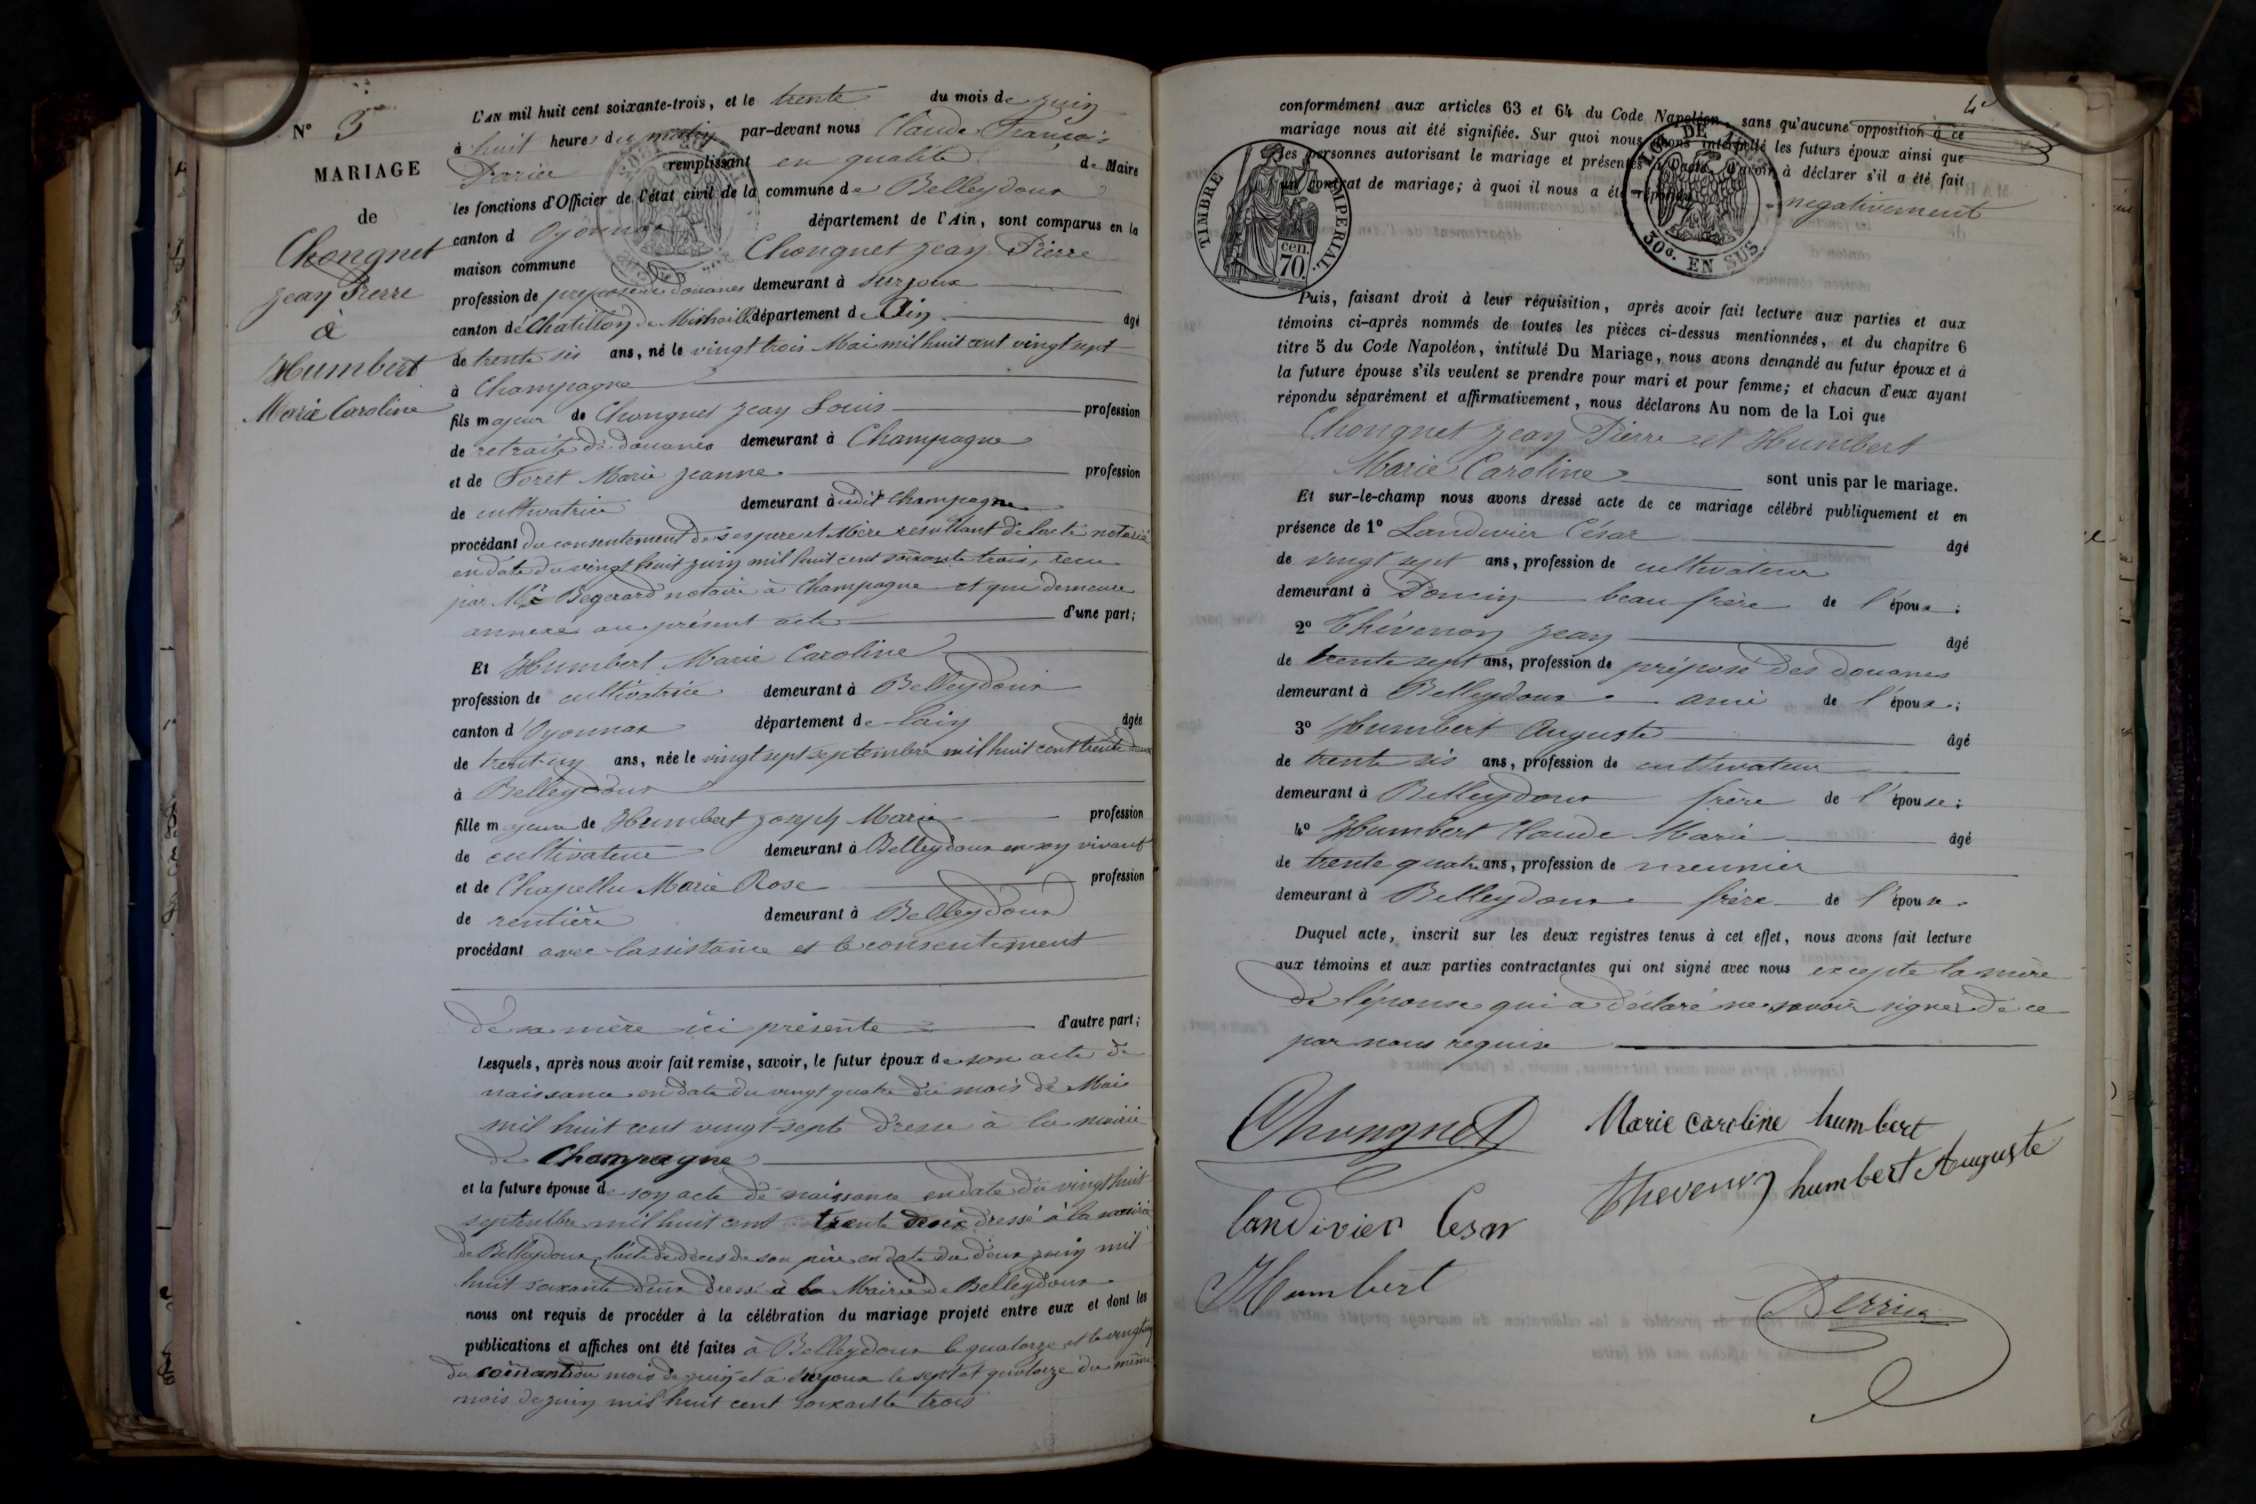 N° 5
MARIAGE
de
Chongnet
Jean Pierre
à
Humbert
Marie Caroline
L'AN mil huit cent soixante-trois, et le trente du mois de juin
à huit heures du matin par-devant nous Claude François
remplissant en qualité de Maire
les fonctions d'Officier de l'état civil de la commune de Belleydoux
canton d'Oyonnax département de l'Ain, sont comparus en la
maison commune Chongnet Jean Pierre
profession de préposé des douanes demeurant à Surjoux
canton de Chatillon de Michaille département de Ain âgé
de trente six ans, né le vingt trois Mai mil huit cent vingt sept
à Champagne
fils majeur de Chongnet Jean Louis profession
de retraité de douanes demeurant à Champagne
et de Foret Marie Jeanne profession
de cultivatrice demeurant à udit Champagne
procédant du consentement de ses père et Mère résultant de l'acte notarié
en date du vingt huit juin mil huit cent soixante trois, recu
par Me notaire à Champagne et qui demeure
annexé au présent acte d'une part;
Et Humbert Marie Caroline
profession de cultivatrice demeurant à Belleydoux
canton d'Oyonnax département de l'ain âgée
de trent-un ans, née le vingt sept septembre mil huit cent trente deux
à Belleydoux
fille majeure de Humbert Joseph Marie profession
de cultivateur demeurant à Belleydoux en son vivant
et de Chapellu Marie Rose profession
de rentière demeurant à Belleydoux
procédant avec l'assistance et le consentement
de sa mère ici présente d'autre part;
Lesquels, après nous avoir fait remise, savoir, le futur époux de son acte de
naissance en date du vingt quatre du mois de Mai
mil huit cent vingt-sept dressé à la mairie
de Champagne
et la future épouse de son acte de naissance en date du vingt huit
septembre mil huit cent trente deux dressé à la mairie
de Belleydoux, l'acte de décès de son père en date du deux juin mil
huit soixante deux dressé à la Mairie de Belleydoux
nous ont requis de procéder à la célébration du mariage projeté entre eux et dont les
publications et affiches ont été faites à Belleydoux le quatorze et le vingt un
du courant du mois de juin et à Surjoux le sept et quatorze du même
mois de juin mil huit cent soixante trois
conformément aux articles 63 et 64 du Code Napoléon, sans qu'aucune opposition à ce
mariage nous ait été signifiée. Sur quoi nous avons interpellé les futurs époux ainsi que
les personnes autorisant le mariage et présentes à l'acte, d'avoir à déclarer s'il a été fait
un contrat de mariage; à quoi il nous a été répondu négativement
TIMBRE IMPÉRIAL.
cen. 70.
LOI DE
30c. EN SUS
Puis, faisant droit à leur réquisition, après avoir fait lecture aux parties et aux
témoins ci-après nommés de toutes les pièces ci-dessus mentionnées, et du chapitre 6
titre 5 du Code Napoléon, intitulé Du Mariage, nous avons demandé au futur époux et à
la future épouse s'ils veulent se prendre pour mari et pour femme; et chacun d'eux ayant
répondu séparément et affirmativement, nous déclarons Au nom de la Loi que
Chongnet Jean Pierre et Humbert
Marie Caroline sont unis par le mariage.
Et sur-le-champ nous avons dressé acte de ce mariage célébré publiquement et en
présence de 1° Landivier César âgé
de vingt sept ans, profession de cultivateur
demeurant à beau frère de l'époux;
2° Thévenon Jean âgé
de trente sept ans, profession de préposé des douanes
demeurant à Belleydoux ami de l'époux;
3° Humbert Auguste âgé
de trente six ans, profession de cultivateur
demeurant à Belleydoux frère de l'épouse;
4° Humbert Claude Marie âgé
de trente quatre ans, profession de meunier
demeurant à Belleydoux frère de l'épouse.
Duquel acte, inscrit sur les deux registres tenus à cet effet, nous avons fait lecture
aux témoins et aux parties contractantes qui ont signé avec nous excepté la mère
de l'épouse qui a déclaré ne savoir signer de ce
par nous requise
Chongnet
Marie Caroline humbert
Thevenon humbert Auguste
Landivier Cesar
Humbert